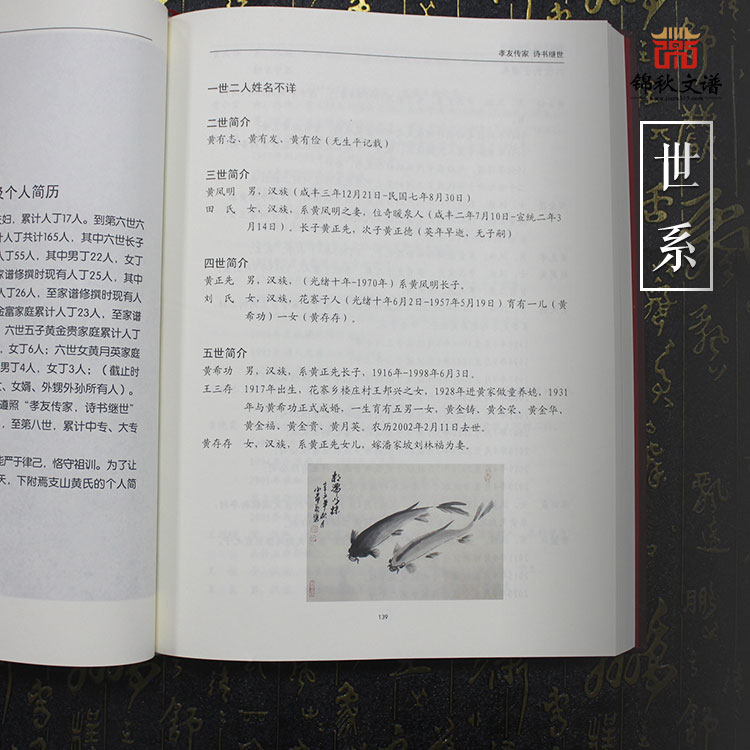 及个人简历
妇，累计人丁17人。到第六世六
人丁共计165人，其中六世长子
丁55人，其中男丁22人，女丁
家谱修撰时现有人丁25人，其中
丁26人，至家谱修撰时现有人
金富家庭累计人丁23人，至家谱
六世五子黄金贵家庭累计人丁
，女丁6人；六世女黄月英家庭
男丁4人，女丁3人；（截止时
、女婿、外甥外孙所有人）。
遵照“孝友传家，诗书继世”
，至第八世，累计中专、大专
能严于律己，恪守祖训。为了让
天，下附焉支山黄氏的个人简
孝友传家 诗书继世
一世二人姓名不详
二世简介
黄有志、黄有发、黄有俭（无生平记载）
三世简介
黄凤明 男，汉族（咸丰三年12月21日-民国七年8月30日）
田 氏 女，汉族，系黄凤明之妻，位奇暖泉人（咸丰二年7月10日-宣统二年3
月14日）。长子黄正先，次子黄正德（英年早逝，无子嗣）
四世简介
黄正先 男，汉族，（光绪十年-1970年）系黄凤明长子。
刘 氏 女，汉族，花寨子人（光绪十年6月2日-1957年5月19日）育有一儿（黄
希功）一女（黄存存）。
五世简介
黄希功 男，汉族，系黄正先长子，1916年-1998年6月3日。
王三存 1917年出生，花寨乡楼庄村王邦兴之女，1928年进黄家做童养媳，1931
年与黄希功正式成婚，一生育有五男一女，黄金铸、黄金荣、黄金华、
黄金福、黄金贵、黄月英。农历2002年2月11日去世。
黄存存 女，汉族，系黄正先女儿，嫁潘家坡刘林福为妻。
139
锦秋文谱
世系